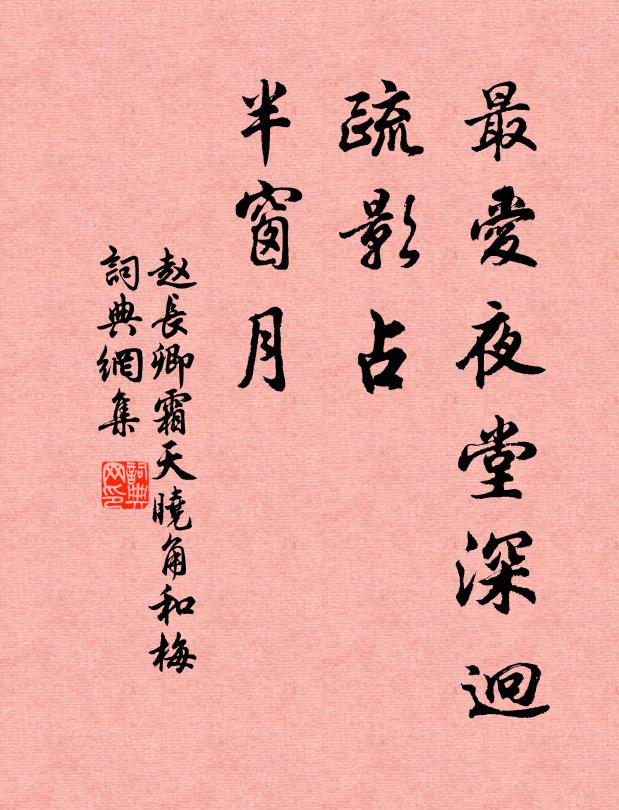 最愛夜堂深迥
疏影占
半窗月
赵長卿霜天曉角和梅
詞典網集
詞典
网印